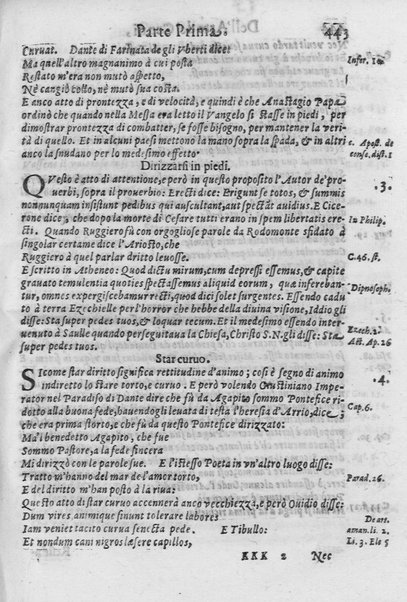 Parte Prima. 443
Curuat. Dante di Farinata de gli Vberti dice:
Ma quell'altro magnanimo à cui posta Infer. 10.
Restato m'era non mutò aspetto,
Nè cangiò collo, nè mutò sua costa.
E anco atto di prontezza, e di velocità, e quindi è che Anastagio Papa
ordinò che quando nella Messa era letto il Vangelo si stasse in piedi, per
dimostrar prontezza di combatter, se fosse bisogno, per mantener la veri-
tà di quello. Et in alcuni paesi mettono la mano sopra la spada, & in altri c. Apost. de
anco la snudano per lo medesimo effetto conse. dist. 1
Dirizzarsi in piedi.
QVesto è atto di attentione, e però in questo proposito l'Autor de'pro- .3.
uerbi, sopra il prouerbio: Erecti dice: Erigunt se totos, & summis
nonnunquam insistunt pedibus qui auscultant, aut spectāt auidius. E Cice-
rone dice; che dopo la morte di Cesare tutti erano in spem libertatis ere-
cti. Quando Ruggiero fù con orgogliose parole da Rodomonte sfidato à In Philip.
singolar certame dice l'Ariosto, che
Ruggiero à quel parlar dritto leuosse. C.46. st.
E scritto in Atheneo: Quod dictu mirum, cum depressi essemus, & capite
grauato temulentia quoties spectassemus aliquid eorum, quæ infereban- Dipnosoph.
tur, omnes expergiscebamur recti, quod dici solet surgentes. Essendo cadu
to à terra Ezechielle per l'horror che hebbe della diuina visione, Iddio gli
disse: Sta super pedes tuos, & loquar tecum. Et il medesimo essendo inter- Ezech. 2.
uenuto à Saule quando perseguitaua la Chiesa, Christo S.N. gli disse: Sta Act. Ap. 26
super pedes tuos.
Star curuo.
SIcome star diritto significa rettitudine d'animo; così è segno di animo .4.
indiretto lo stare torto, e curuo. E però volendo Giustiniano Impe-
rator nel Paradiso di Dante dire che fù da Agapito sommo Pontefice ri-
dotto alla buona fede, hauendogli leuata di testa l'heresia d'Arrio, dice, Cap.6.
che era prima storto, e che fù da questo Pontefice dirizzato:
Ma'l benedetto Agapito, che fue
Sommo Pastore, a la fede sincera
Mi dirizzò con le parole sue. E l'istesso Poeta in vn'altro luogo disse:
Tratto m'hanno del mar de l'amor torto, Parad. 26.
E del diritto m'han posto à la riua:
Questo atto di star curuo accennerà anco vecchiezza, e però Ouidio disse:
Dum vires, animique sinunt tolerare labores De art.
Iam veniet tacito curua senecta pede. E Tibullo: aman. li. 2.
Et nondum cani nigros læsere capillos, Li. 3. Ele 5
XXX 2 Nec